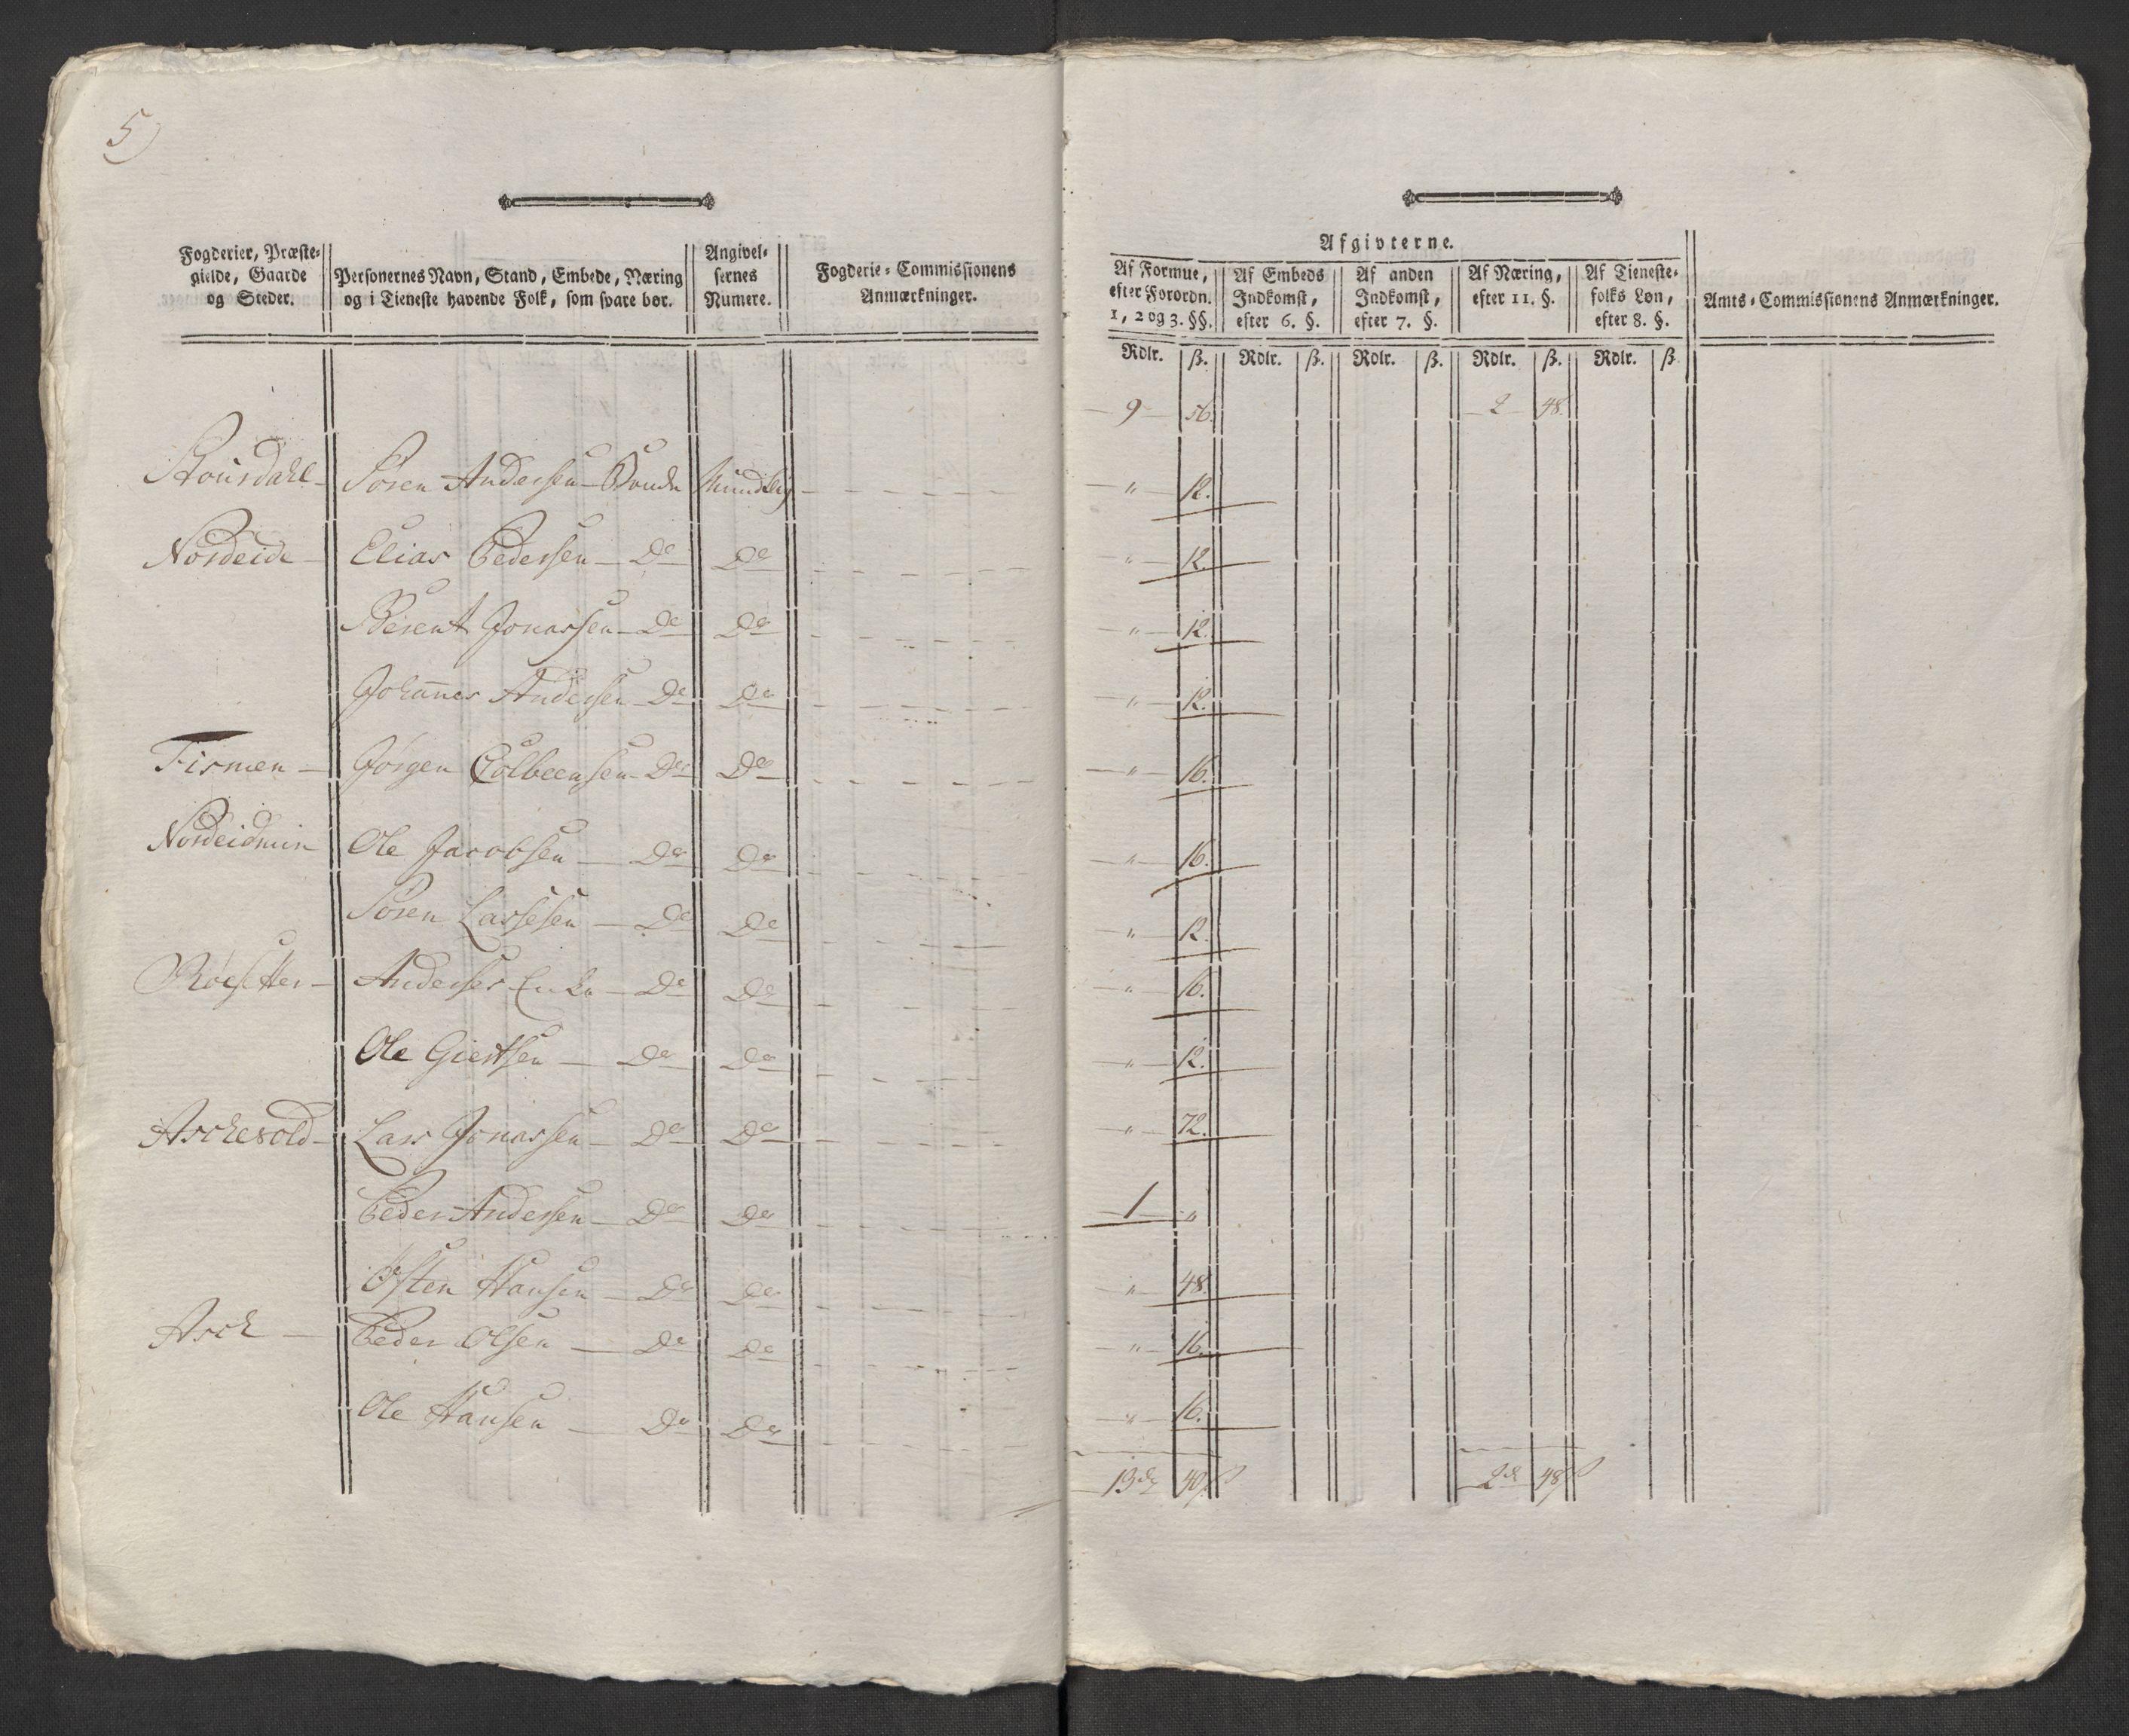 5)
Fogderier, Præste-
gielde, Gaarde
og Steder.
Personernes Navn, Stand, Embede, Næring
og i Tieneste havende Folk, som svare bør.
Angivel-
sernes
Numere.
Fogderie-Commissionens
Anmærkninger.
Afgivterne.
Af Formue,
efter Forordn.
1, 2 og 3. §§.
Af Embeds
Indkomst,
efter 6. §.
Af anden
Indkomst,
efter 7. §.
Af Næring,
efter 11. §.
Af Tieneste-
folks Løn,
efter 8. §.
Amts-Commissionens Anmærkninger.
Rdlr. ß. Rdlr. ß. Rdlr. ß. Rdlr. ß. Rdlr. ß.
9 56. 2 48.
Søren Andersen Bonde Mundtlig " 12.
Nordeide Elias Pedersen Do Do " 12.
Berent Jonassen Do Do " 12.
Johannes Andersen Do Do " 12.
Jørgen Colbeensen Do Do " 16.
Ole Jacobsen Do Do " 16.
Søren Lassesen Do Do " 12.
Røesetter Anderses Enke Do Do " 16.
Ole Giertsen Do Do " 12.
Lars Jonassen Do Do " 72.
Peder Andersen Do Do 1 "
Østen Hansen Do Do " 48.
Asch Peder Olsen Do Do " 16.
Ole Hansen Do Do " 16.
13 rd 40 ß 2 rd 48 ß